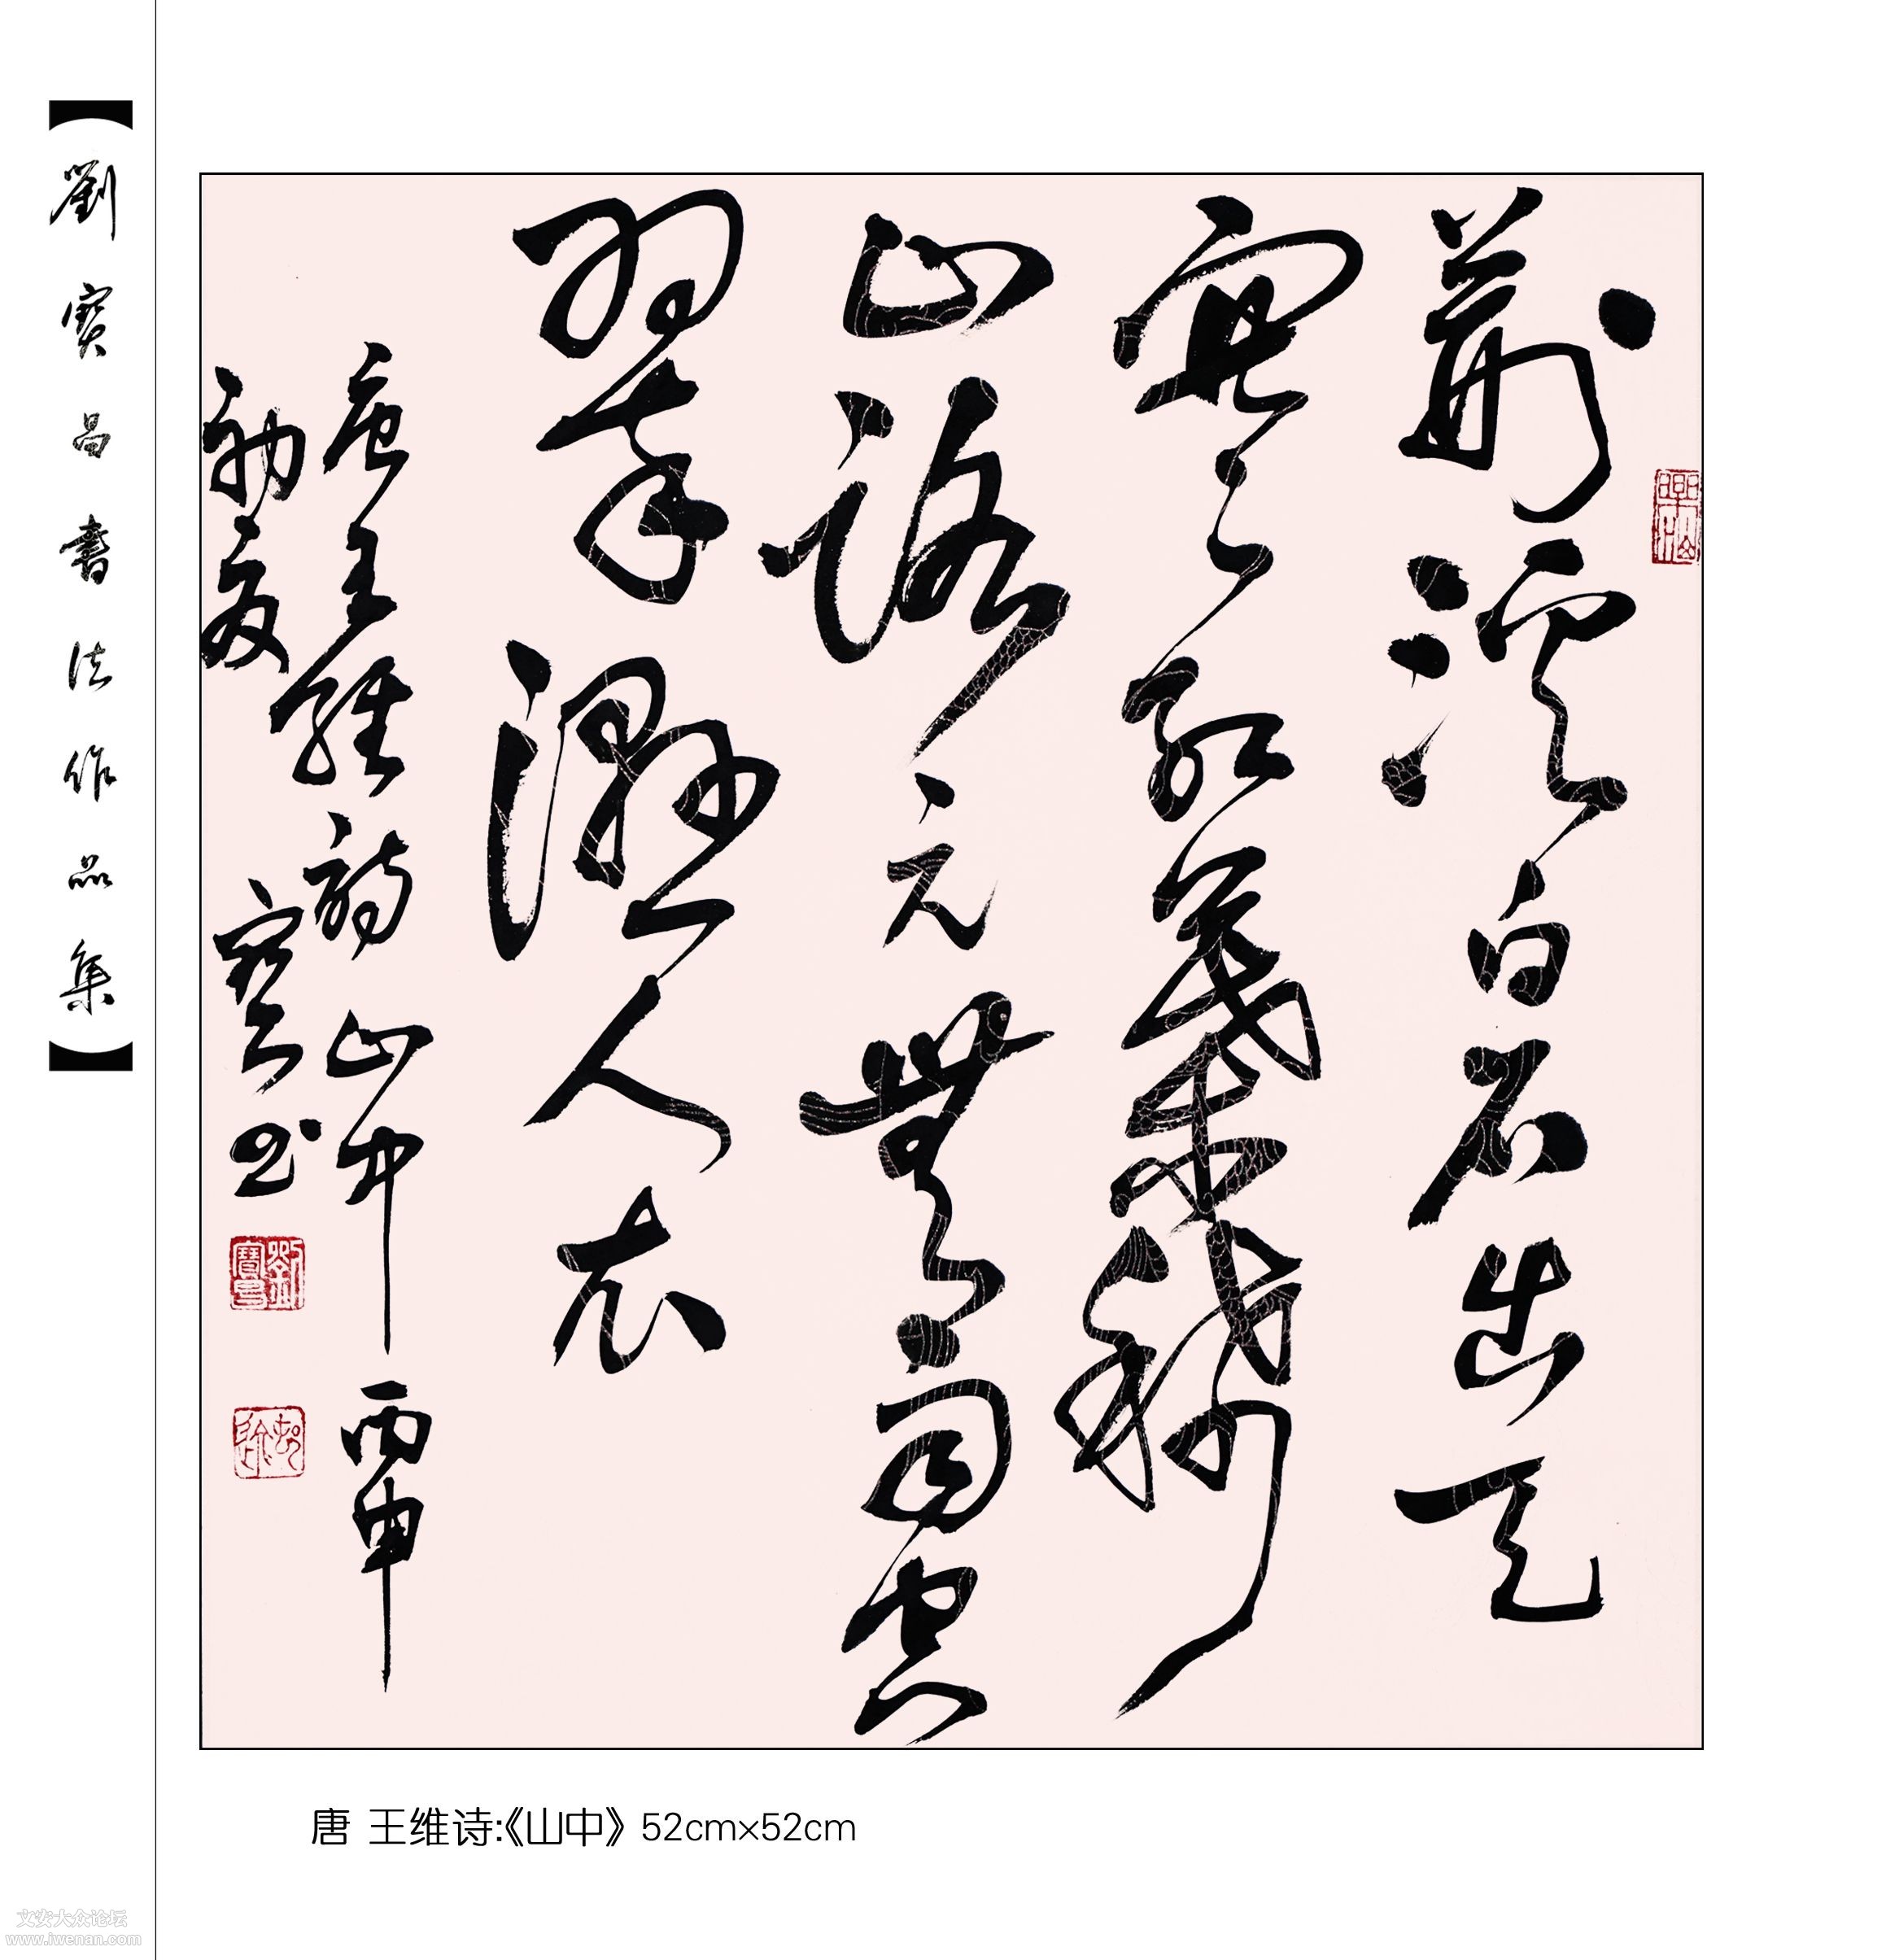 【劉寶昌書法作品集】
荊溪白石出天
寒紅葉稀
山路元無雨空
翠濕人衣
唐王維詩山中 丙申
初夏 寶书
劉寶昌
唐 王维诗:《山中》 52cm×52cm
文安大众论坛
www.iwenan.com